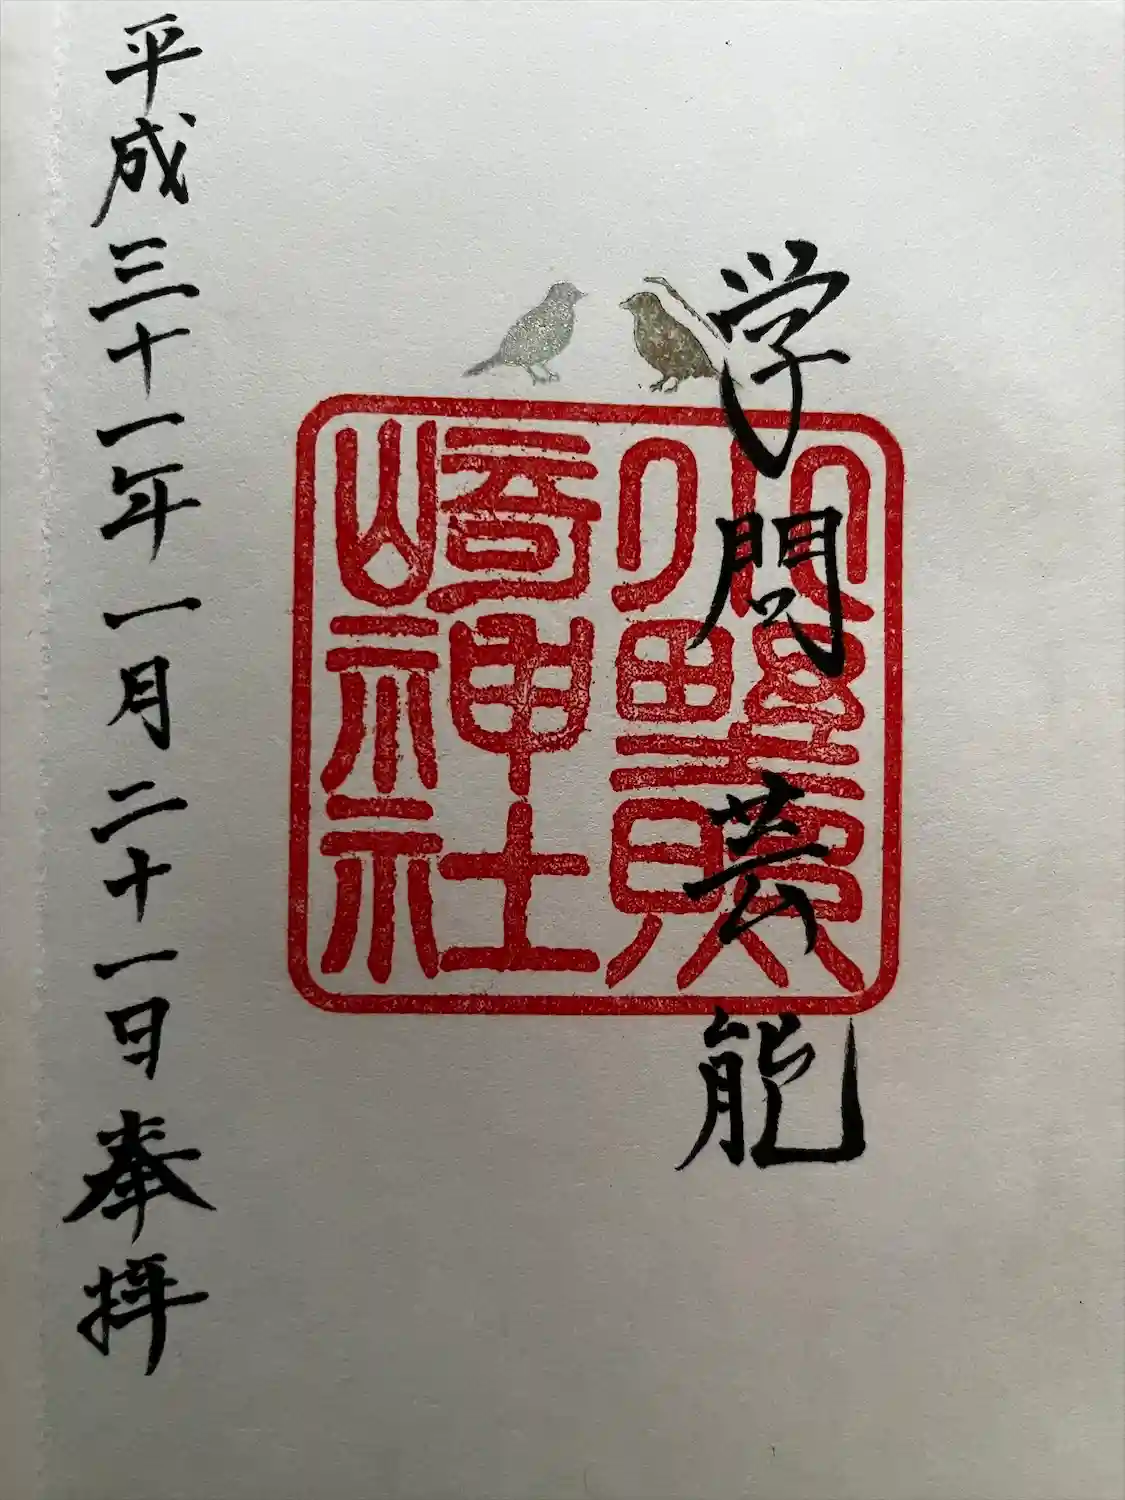 学問芸能
小野照
崎神社
平成三十一年一月二十一日奉拝